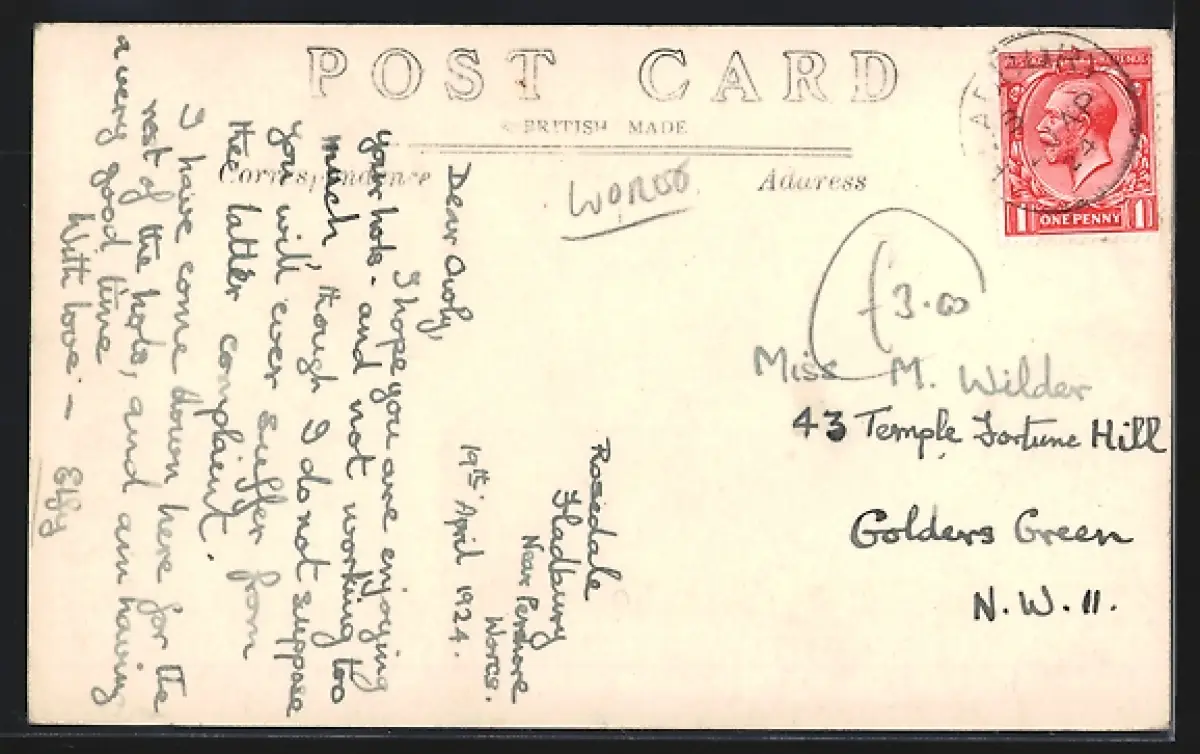 POST CARD
BRITISH MADE
Correspondence
Address
WORCS
£3.00
ONE PENNY
1 1
Miss M. Wilder
43 Temple Fortune Hill
Golders Green
N.W.11.
Rosedale
Fladbury
Near Pershore
Worcs.
19th April 1924.
Dear Owly,
I hope you are enjoying
your hols - and not working too
much, though I do not suppose
you will ever suffer from
the latter complaint.
I have come down here for the
rest of the hols, and am having
a very good time
With love :-
Elfy